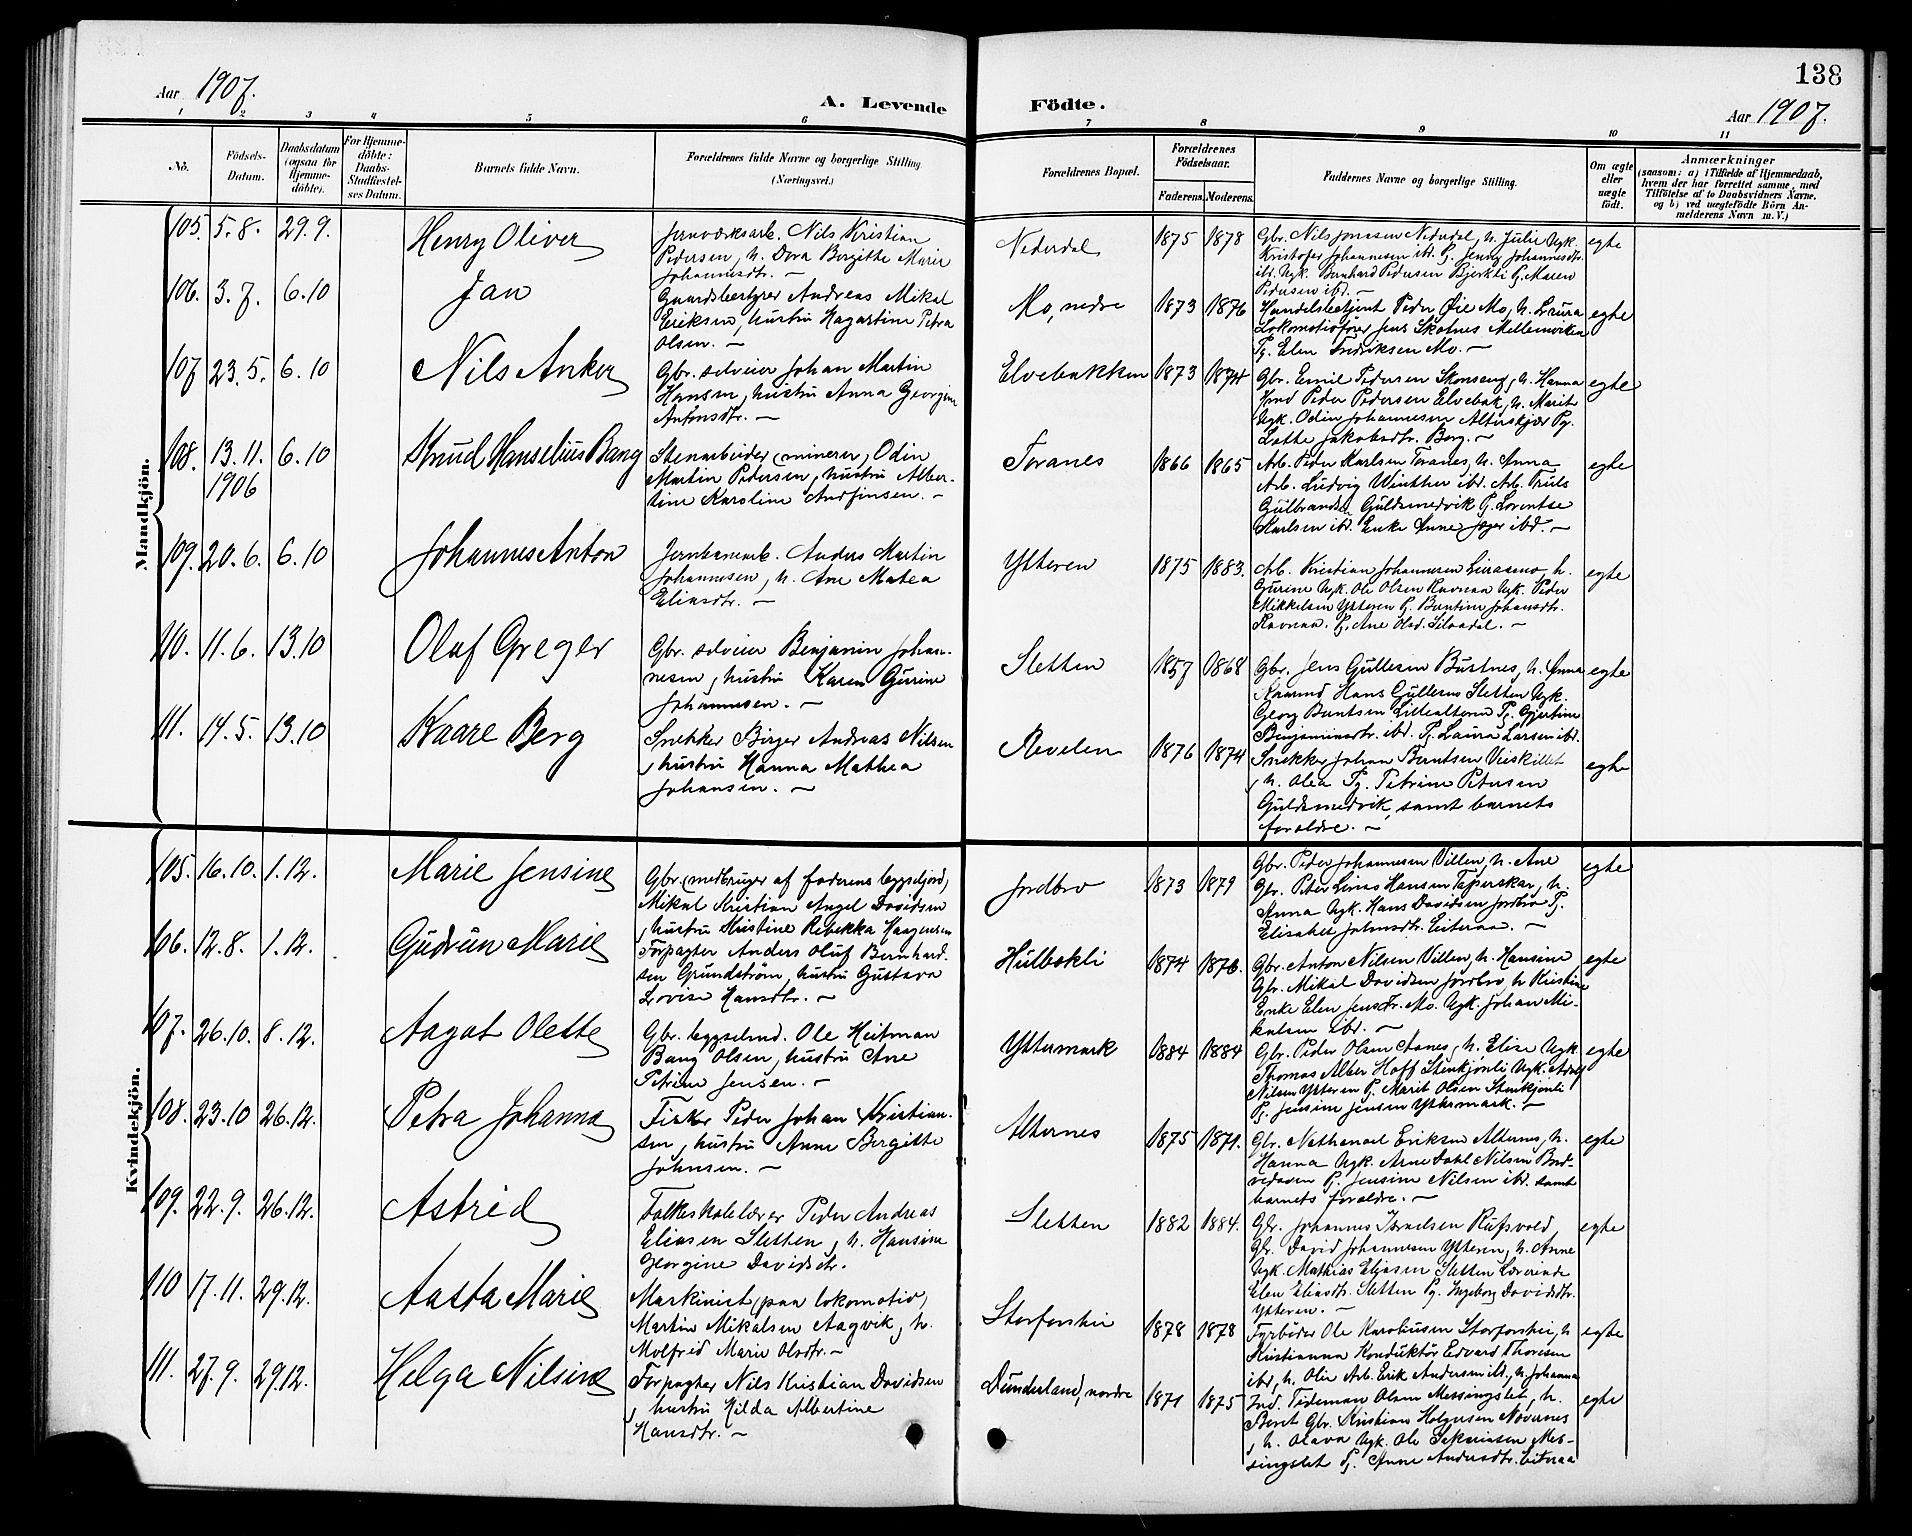 138
Aar 1907.
A. Levende Födte.
Aar 1907.
1 2 3 4 5 6 7 8 9 10 11
No.
Födsels-
Datum.
Daabsdatum
(ogsaa for
Hjemme-
döbte).
For Hjemme-
döbte:
Daabs-
Stadfæstel-
ses Datum.
Barnets fulde Navn.
Forældrenes fulde Navne og borgerlige Stilling
(Næringsvei.)
Forældrenes Bopæl.
Forældrenes
Födselsaar.
Faderens. Moderens.
Faddernes Navne og borgerlige Stilling.
Om ægte
eller
uægte
födt.
Anmærkninger
(saasom: a) i Tilfælde af Hjemmedaab,
hvem der har forrettet samme, med
Tilföielse af to Daabsvidners Navne.
og b) ved uægtefödte Börn An-
melderens Navn m. V.)
Mandkjön.
105. 5.8. 29.9. Henry Oliver
Jernværksarb. Nils Kristian
Pedersen, h. Dora Bergitte Marie
Johannesdtr. —
Nederdal 1875 1878
Gbr. Nils Jonassen Nederdal, h. Julie Ugk.
Kristofer Johannesen ibd. Pg. Jenny Johannesdtr.
ibd. Ugk. Bernhard Pedersen Bjerkli Pg. Maren
Pedersen ibd. —
egte
106. 3.7. 6.10 Jan
Gaardsbestyrer Andreas Mikal
Eriksen, hustru Hagartine Petra
Olsen. —
Mo, nedre 1873 1876
Handelsbetjent Peder Øie Mo, h. Laura
Lokomotivfører Jens Skotnes Mellemviken
Pg. Elen Fredriksen Mo. —
egte
107 23.5. 6.10 Nils Anker
Gbr. selveier Johan Martin
Hansen, hustru Anna Georgine
Antonsdtr. —
Elvebakken 1873 1874
Gbr. Emil Pedersen Skonseng, h. Hanna
Ind. Peder Pedersen Elvebak, h. Marit
Ugk. Odin Johannesen Alterskjær Pg.
Lotte Jakobsdtr. Berg. —
egte
108. 13.11. 1906 6.10 Knud Hanselius Bang
Stenarbeider (minerer, Odin
Martin Pedersen, hustru Alber-
tine Karoline Andfinsen. —
Toranes 1866 1865
Arb. Peder Karlsen Toranes, h. Anna
Arb. Ludvig Winther ibd. Arb. Truls
Gulbrandsen Guldsmedvik Pg. Lorentse
Karlsen ibd. Enke Anne Jæger ibd. —
egte
109. 20.6. 6.10 Johannes Anton
Jernbanearb. Anders Martin
Johannesen, h. Ane Matea
Eliasdtr. —
Ytteren 1875 1883.
Arb. Kristian Johannesen Lirasmo h.
Gurine Ugk. Ole Olsen Ravnaa Ugk. Peder
Mikkelsen Ytteren Pg. Berntine Johansdtr.
Ravnaa. Pg. Ane Olsd. —
egte
110. 11.6. 13.10 Olaf Greger
Gbr. selveier Benjamin Johan-
nesen, hustru Karen Gurine
Johannesen. —
Sletten 1857 1868
Gbr. Jens Gullesen Bustnes, h. Anna
Kaarmd. Hans Gullesen Sletten Ugk.
Georg Berntsen Lillealteren Pg. Gjertine
Benjaminsdtr. ibd. Pg. Laura Larsen ibd.
egte
111. 14.5. 13.10 Kaare Berg
Snekker Birger Andreas Nilsen
, hustru Hanna Mathea
Johansen. —
Revelen 1876 1874
Snekker Johan Berntsen Veiskillet
, h. Olea Pg. Petrine Petersen
Guldsmedvik, samt barnets
forældre. —
egte
Kvindekjön.
105. 16.10. 1.12. Marie Jensine
Gbr. (medbruger af faderens bygseljord,
Mikal Kristian Angel Davidsen
, hustru Kristine Rebekka Haagensen
Jordbro 1873 1879
Gbr. Peder Johannesen Villen, h. Ane
Gbr. Peter Linas Hansen Taperskar, h.
Anna Ugk. Hans Davidsen Jordbro Pg.
Elisabet Johnsdtr. Eiteraa. —
egte
106. 12.8. 1.12. Gudrun Marie
Forpagter Anders Oluf Bernhard-
sen Grundstrøm, hustru Gustava
Lovise Hansdtr. —
Hulbekli 1874 1876.
Gbr. Anton Nilsen Villen, h. Hansine
Gbr. Mikal Davidsen Jordbro, h. Kristine
Enke Elen Jensdtr. Mo. Ugk. Johan Mi-
kalsen ibd. —
egte
107. 26.10. 8.12. Aagot Olette
Gbr. bygselmd. Ole Heitman
Bang Olsen, hustru Ane
Petrine Jensen. —
Yttermark 1884 1884
Gbr. Peder Olsen Aanes, h. Elise Ugk.
Thomas Alber Hoff Stenkjønli Ugk. Adolf
Nilsen Ytteren Pg. Marit Olsen Stenkjønli
Pg. Jensine Jensen Yttermark. —
egte
108. 23.10 26.12. Petra Johanna
Fisker Peder Johan Kristian-
sen, hustru Anne Bergitte
Johnsen. —
Alternes 1875 1871.
Gbr. Nathanael Eriksen Alternes, h.
Hanna Ugk. Arne Dahl Nilsen Bred-
viksven Pg. Jensine Nilsen ibd. samt
barnets forældre. —
egte
109. 22.9. 26.12. Astrid
Folkeskolelærer Peder Andreas
Eliasen Sletten, h. Hansine
Georgine Davidsdtr.
Sletten 1882 1884.
Gbr. Johannes Israelsen Rufsvold,
Gbr. David Johannesen Ytteren, h. Anne
Ugk. Mathias Eliasen Sletten Lærerinde
Elen Eliasdtr. Sletten Pg. Ingeborg Davidsdtr.
Ytteren. —
egte
110 17.11. 29.12. Aasta Marie
Maskinist (paa lokomotiv,
Martin Mikalsen Aagvik, h.
Molfrid Marie Olsdtr. —
Storforshei 1878 1878
Fyrbøder Ole Karoliusen Storforshei, h
Kristianna Konduktør Edvard Thoresen
ibd, h. Olie Arb. Erik Andersen ibd, h. Johanna
egte
111. 27.9. 29.12. Helga Nilsine
Forpagter Nils Kristian Davidsen
, hustru Hilda Albertine
Hansdtr. —
Dunderland, nordre 1871 1875
Ind. Tideman Olsen Messingslet, h.
Beret Gbr. Kristian Holgersen Nævernes
, h. Olava Ugk. Ole Sakariasen Mes-
singslet Pg. Anne Andersdtr. Eiteraa
egte